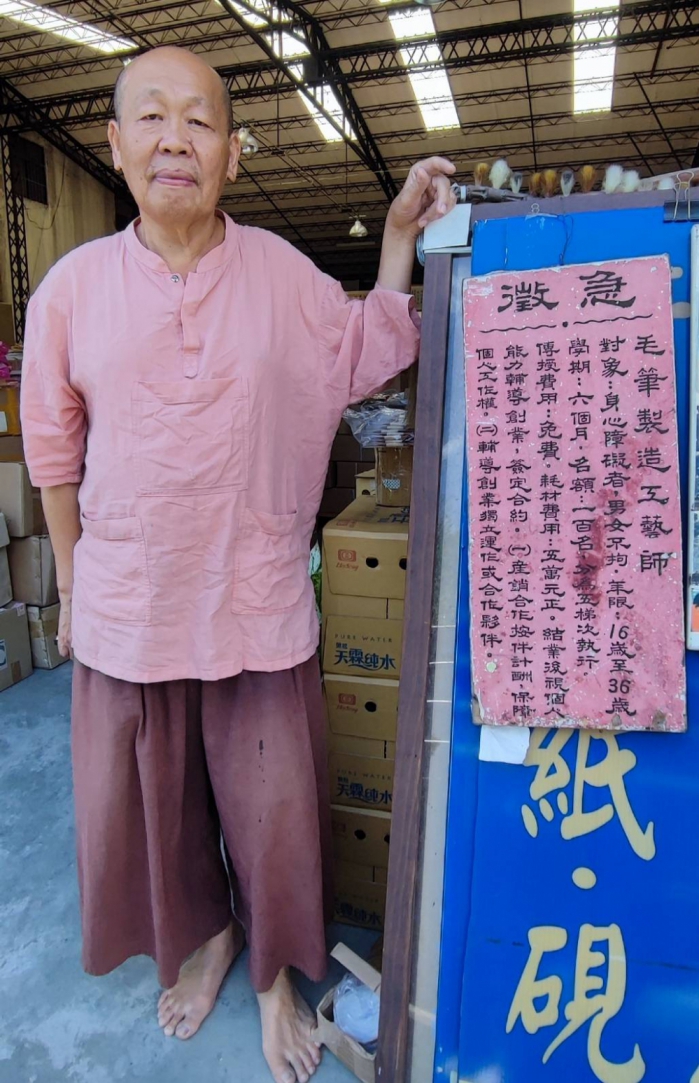 急徵
毛筆製造工藝師
對象：身心障礙者，男女不拘，年限：16歲至36歲
學期：六個月，名額：一百名，分為五梯次執行
傳授費用：免費。耗材費用：五萬元正。結業後視個人
能力輔導創業，簽定合約 (一)產銷合作按件計酬，保障
個人工作權。(二)輔導創業獨立運作或合作夥伴。
紙·硯
PURE WATER
天霖純水
PURE WATER
天霖純水
天霖純水